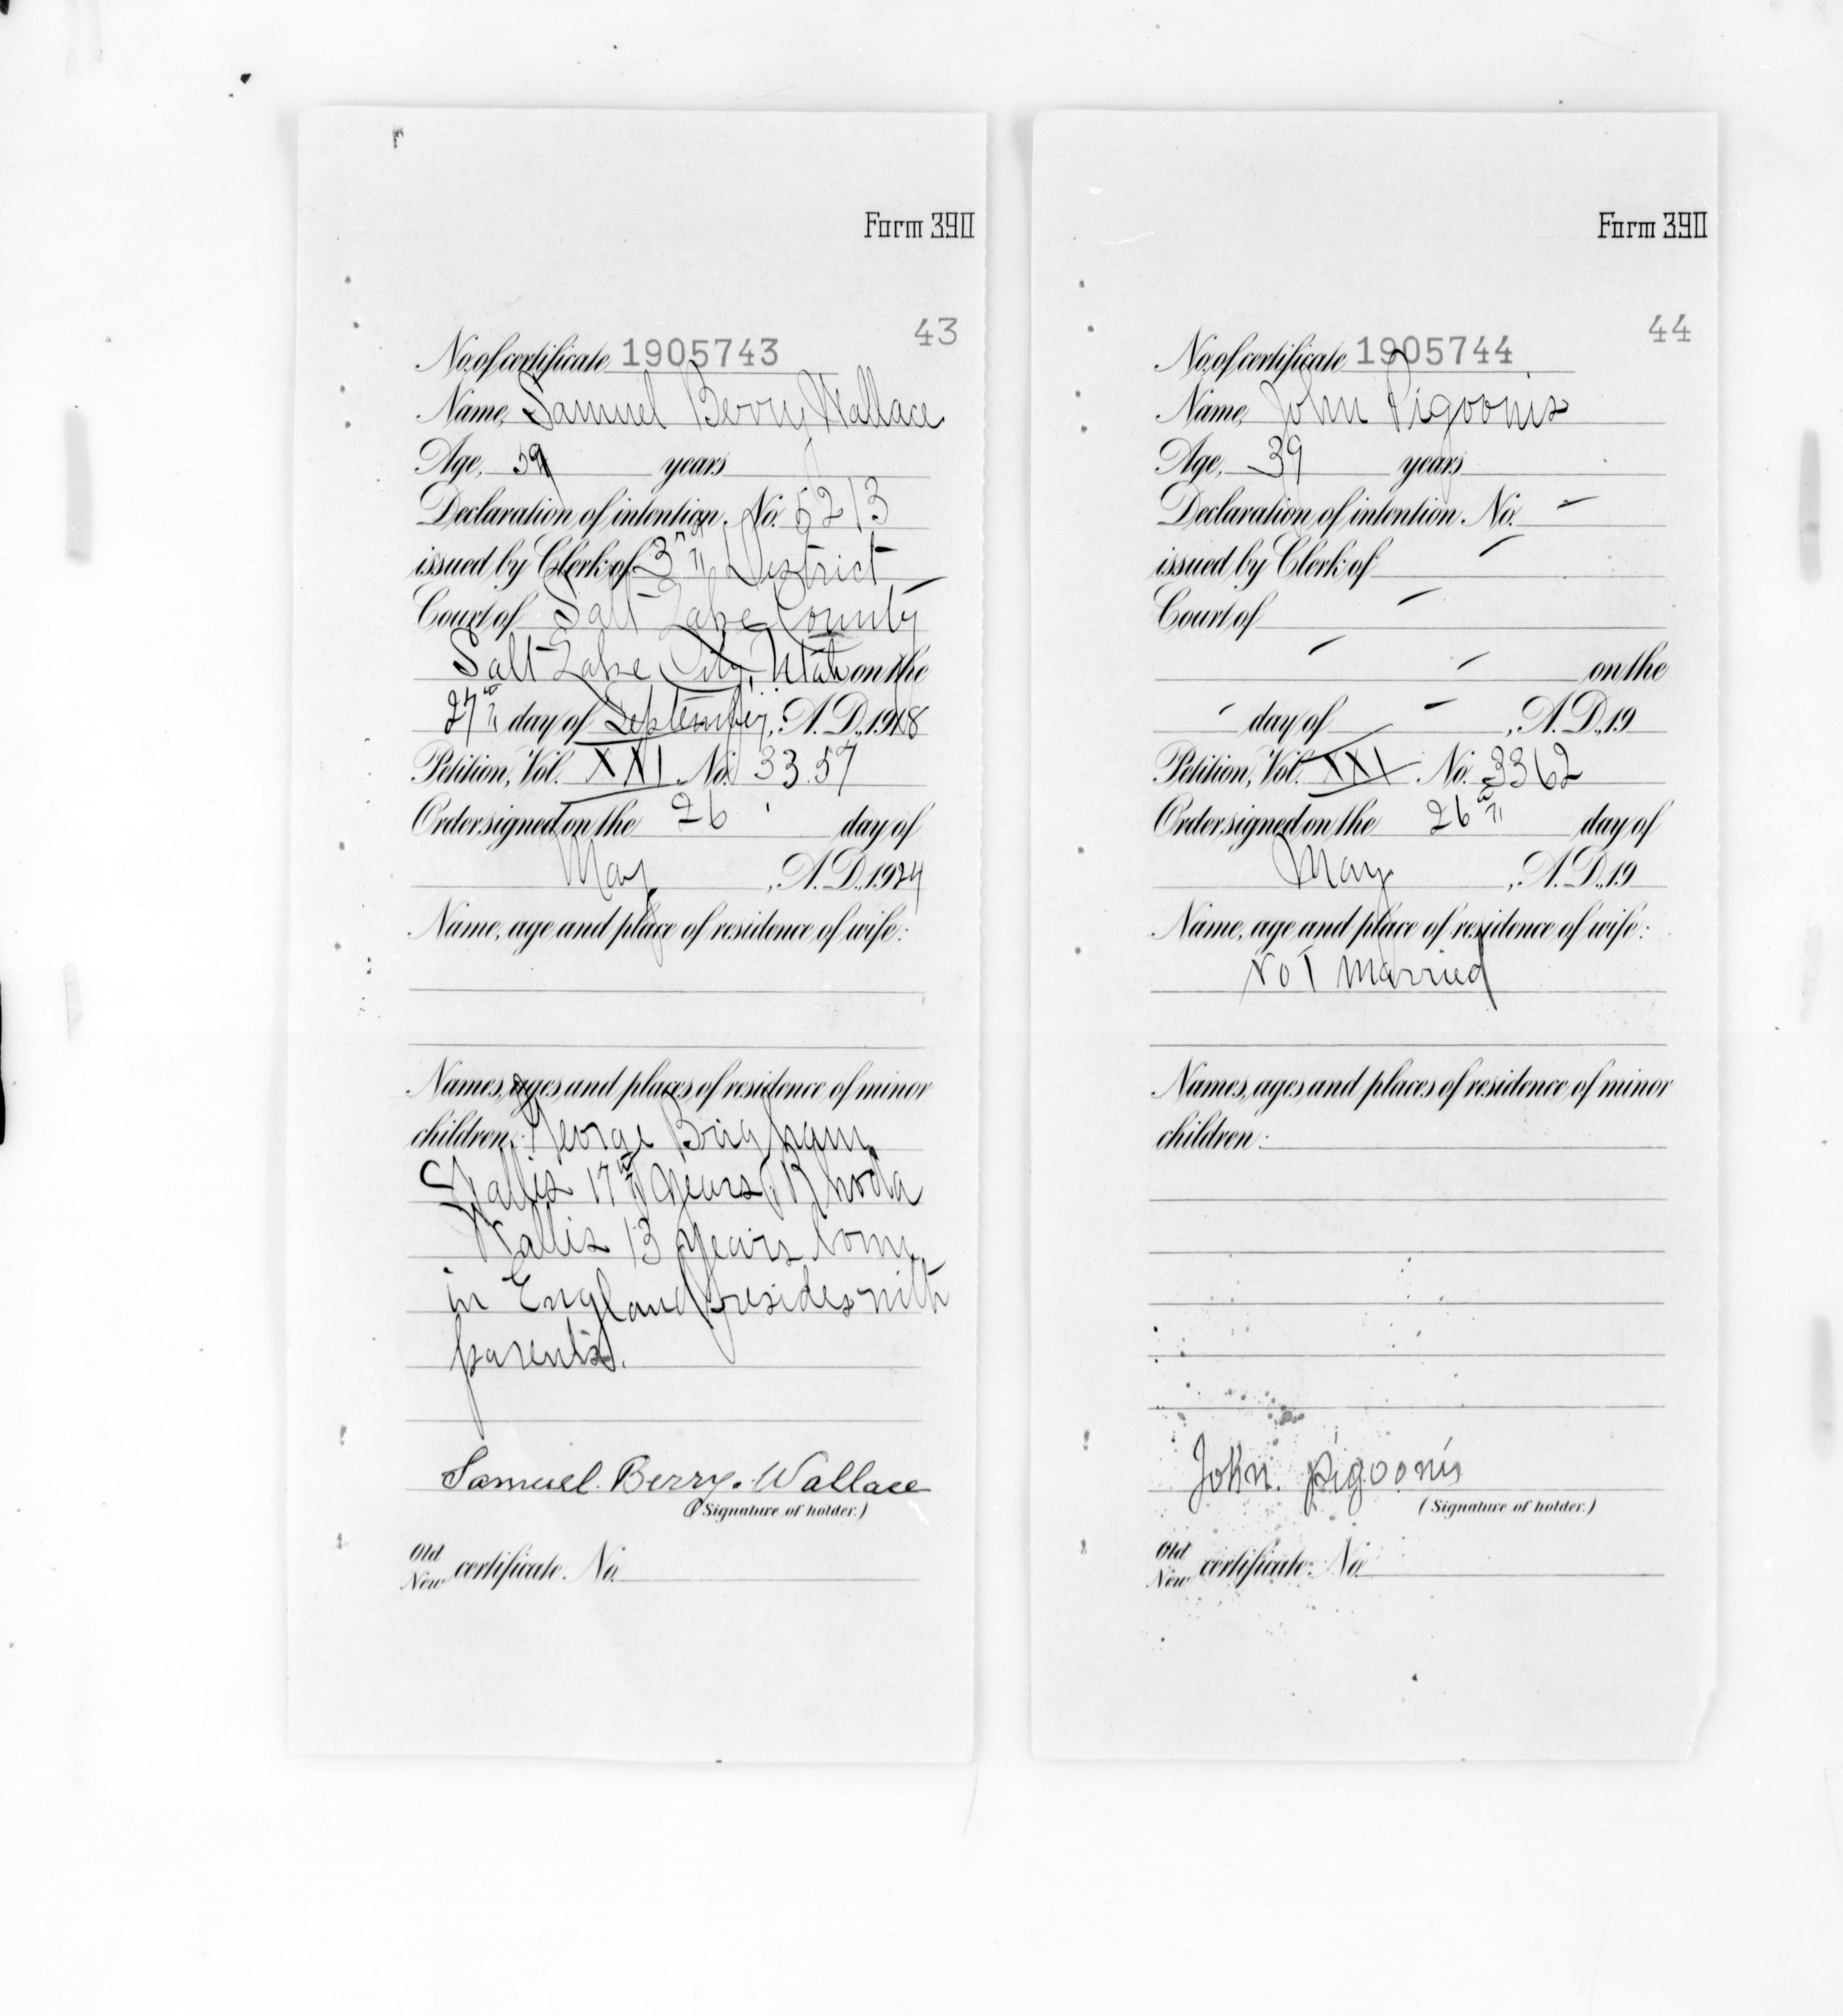 Form 390
43
No. of certificate 1905743
Name, Samuel Berry Wallace
Age, 59 years
Declaration of intention. No. 5213
issued by Clerk of 3rd District
Court of Salt Lake County
Salt Lake City, Utah on the
27th day of September, A.D., 1918
Petition, Vol. XXI No. 3357
Order signed on the 26 day of
May, A.D., 1924
Name, age and place of residence of wife:
Names, ages and places of residence of minor
children: George Brigham
Wallis 17 years, Rhoda
Wallis 13 years born
in England resides with
parents.
Samuel. Berry. Wallace
(Signature of holder.)
Old
New certificate. No.
Form 390
44
No. of certificate 1905744
Name, John Pigoonis
Age, 39 years
Declaration of intention. No. -
issued by Clerk of -
Court of -
- - on the
- day of - , A.D., 19
Petition, Vol. XXI No. 3362
Order signed on the 26th day of
May, A.D., 19
Name, age and place of residence of wife:
Not Married
Names, ages and places of residence of minor
children:
John. pigoonis
(Signature of holder.)
Old
New certificate. No.